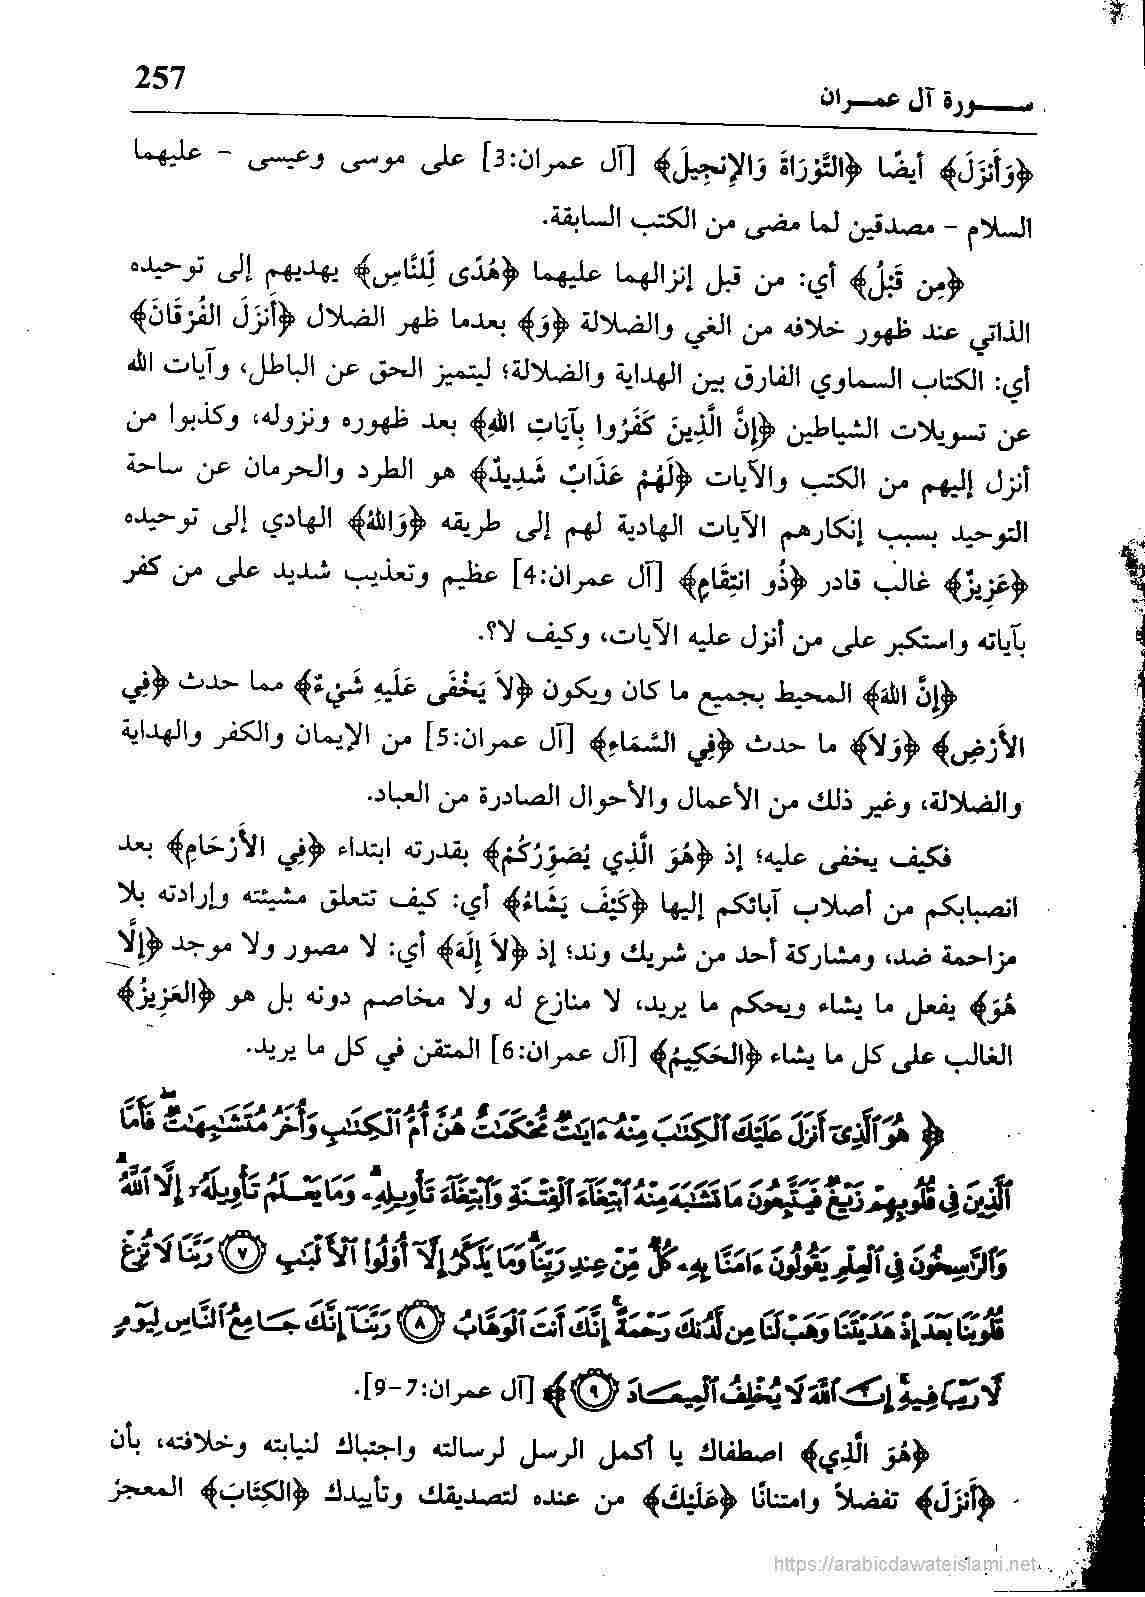 257
سورة آل عمران
﴿وَأَنزَلَ﴾ أيضًا ﴿التَّوْرَاةَ وَالإِنجِيلَ﴾ [آل عمران:3] على موسى وعيسى - عليهما
السلام - مصدقين لما مضى من الكتب السابقة.
﴿مِن قَبْلُ﴾ أي: من قبل إنزالهما عليهما ﴿هُدًى لِّلنَّاسِ﴾ يهديهم إلى توحيده
الذاتي عند ظهور خلافه من الغي والضلالة ﴿وَ﴾ بعدما ظهر الضلال ﴿أَنزَلَ الفُرْقَانَ﴾
أي: الكتاب السماوي الفارق بين الهداية والضلالة؛ ليتميز الحق عن الباطل، وآيات الله
عن تسويلات الشياطين ﴿إِنَّ الَّذِينَ كَفَرُوا بِآيَاتِ اللهِ﴾ بعد ظهوره ونزوله، وكذبوا من
أنزل إليهم من الكتب والآيات ﴿لَهُمْ عَذَابٌ شَدِيدٌ﴾ هو الطرد والحرمان عن ساحة
التوحيد بسبب إنكارهم الآيات الهادية لهم إلى طريقه ﴿وَاللهُ﴾ الهادي إلى توحيده
﴿عَزِيزٌ﴾ غالب قادر ﴿ذُو انتِقَامٍ﴾ [آل عمران:4] عظيم وتعذيب شديد على من كفر
بآياته واستكبر على من أنزل عليه الآيات، وكيف لا؟.
﴿إِنَّ اللهَ﴾ المحيط بجميع ما كان ويكون ﴿لاَ يَخْفَى عَلَيهِ شَيْءٌ﴾ مما حدث ﴿فِي
الأَرْضِ﴾ ﴿وَلاَ﴾ ما حدث ﴿فِي السَّمَاءِ﴾ [آل عمران:5] من الإيمان والكفر والهداية
والضلالة، وغير ذلك من الأعمال والأحوال الصادرة من العباد.
فكيف يخفى عليه؛ إذ ﴿هُوَ الَّذِي يُصَوِّرُكُمْ﴾ بقدرته ابتداء ﴿فِي الأَرْحَامِ﴾ بعد
انصبابكم من أصلاب آبائكم إليها ﴿كَيْفَ يَشَاءُ﴾ أي: كيف تتعلق مشيئته وإرادته بلا
مزاحمة ضد، ومشاركة أحد من شريك وند؛ إذ ﴿لاَ إِلَهَ﴾ أي: لا مصور ولا موجد ﴿إِلَّا
هُوَ﴾ يفعل ما يشاء ويحكم ما يريد، لا منازع له ولا مخاصم دونه بل هو ﴿العَزِيزُ﴾
الغالب على كل ما يشاء ﴿الحَكِيمُ﴾ [آل عمران:6] المتقن في كل ما يريد.
﴿هُوَ ٱلَّذِىٓ أَنزَلَ عَلَيْكَ ٱلْكِتَٰبَ مِنْهُ ءَايَٰتٌ مُّحْكَمَٰتٌ هُنَّ أُمُّ ٱلْكِتَٰبِ وَأُخَرُ مُتَشَٰبِهَٰتٌ ۖ فَأَمَّا
ٱلَّذِينَ فِى قُلُوبِهِمْ زَيْغٌ فَيَتَّبِعُونَ مَا تَشَٰبَهَ مِنْهُ ٱبْتِغَآءَ ٱلْفِتْنَةِ وَٱبْتِغَآءَ تَأْوِيلِهِۦ ۗ وَمَا يَعْلَمُ تَأْوِيلَهُۥٓ إِلَّا ٱللَّهُ ۗ
وَٱلرَّٰسِخُونَ فِى ٱلْعِلْمِ يَقُولُونَ ءَامَنَّا بِهِۦ كُلٌّ مِّنْ عِندِ رَبِّنَا ۗ وَمَا يَذَّكَّرُ إِلَّآ أُو۟لُوا۟ ٱلْأَلْبَٰبِ ۝٧ رَبَّنَا لَا تُزِغْ
قُلُوبَنَا بَعْدَ إِذْ هَدَيْتَنَا وَهَبْ لَنَا مِن لَّدُنكَ رَحْمَةً ۚ إِنَّكَ أَنتَ ٱلْوَهَّابُ ۝٨ رَبَّنَآ إِنَّكَ جَامِعُ ٱلنَّاسِ لِيَوْمٍ
لَّا رَيْبَ فِيهِ ۚ إِنَّ ٱللَّهَ لَا يُخْلِفُ ٱلْمِيعَادَ ۝٩﴾ [آل عمران:7-9].
﴿هُوَ الَّذِي﴾ اصطفاك يا أكمل الرسل لرسالته واجتباك لنيابته وخلافته، بأن
﴿أَنزَلَ﴾ تفضلاً وامتنانًا ﴿عَلَيْكَ﴾ من عنده لتصديقك وتأييدك ﴿الكِتَابَ﴾ المعجز
https://arabicdawateislami.net